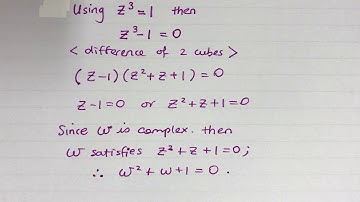 Using z³ = 1 then
z³-1 = 0
< difference of 2 cubes >
(z-1)(z²+z+1) = 0
z-1=0 or z²+z+1=0
Since w is complex. then
w satisfies z²+z+1=0;
∴ w²+w+1=0.